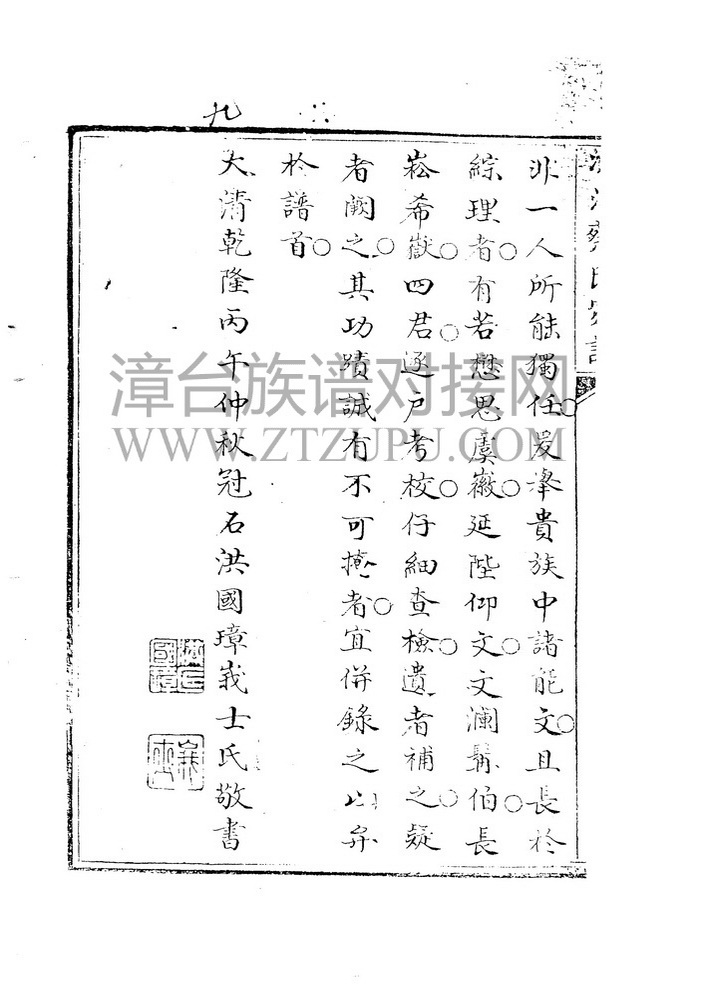 非一人所能獨任爰舉貴族中諸能文且長於
綜理者有若懋思虞徽延陛仰文文瀾群伯長
崧希嶽四君逐戶考校仔細查檢遺者補之疑
者闕之其功蹟誠有不可掩者宜併錄之以弁
於譜首
大清乾隆丙午仲秋冠石洪國璋峩士氏敬書
九
漳台族谱对接网
WWW.ZTZUPU.COM